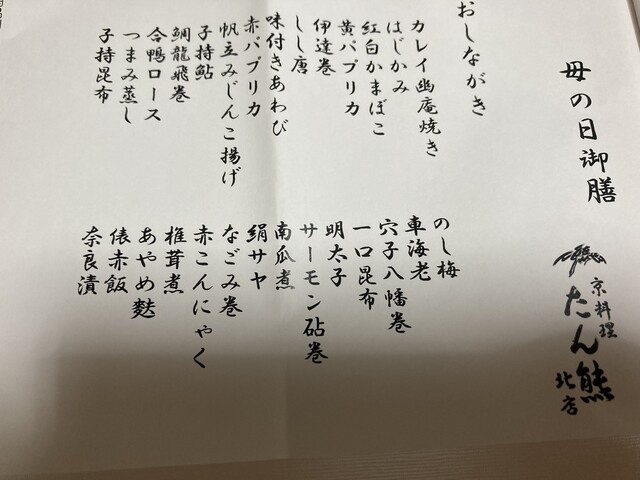 母の日御膳
京料理
たん熊
北店
おしながき
カレイ幽庵焼き
はじかみ
紅白かまぼこ
黄パプリカ
伊達巻
しし唐
味付きあわび
赤パプリカ
帆立みじんこ揚げ
子持鮎
鯛龍飛巻
合鴨ロース
つまみ蒸し
子持昆布
のし梅
車海老
穴子八幡巻
一口昆布
明太子
サーモン砧巻
南瓜煮
絹サヤ
なごみ巻
赤こんにゃく
椎茸煮
あやめ麩
俵赤飯
奈良漬